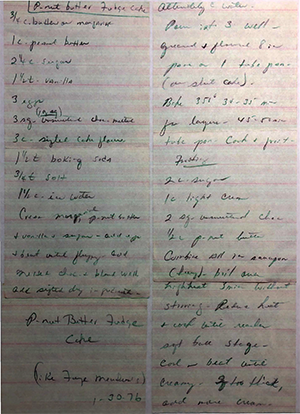 P-nut Butter Fudge Cake
3/4 c. butter or margarine
1 c. peanut butter
2 1/4 c sugar
1 1/2 t. vanilla
3 eggs
(1 oz ea)
3 sq. unsweetened choc. melted
3 c. sifted cake flour
1 1/2 t baking soda
3/4 t Salt
1 1/2 c. ice water
Cream marg., p-nut butter
+ vanilla + sugar - add eggs
+ beat until fluffy. Add
melted choc + blend well
add sifted dry ingredients
P-nut Butter Fudge
Cake
(Like Faye
1-30-76
Alternately & water.
Pour into 3 well
greased + floured 8 in
pans or 1 tube pan
(or sheet cake).
Bake 350° 30-35 min
for layers - 45-
tube pan. Cool + frost.
Frosting
2 c. sugar
1 c light cream
2 sq. unsweetened choc
1/2 c p-nut butter
Combine all in saucepan
boil over
highest 3 min without
stirring. Reduce heat
+ cook until reaches
soft ball stage.
Cool - beat until
creamy. If too thick,
add more cream.